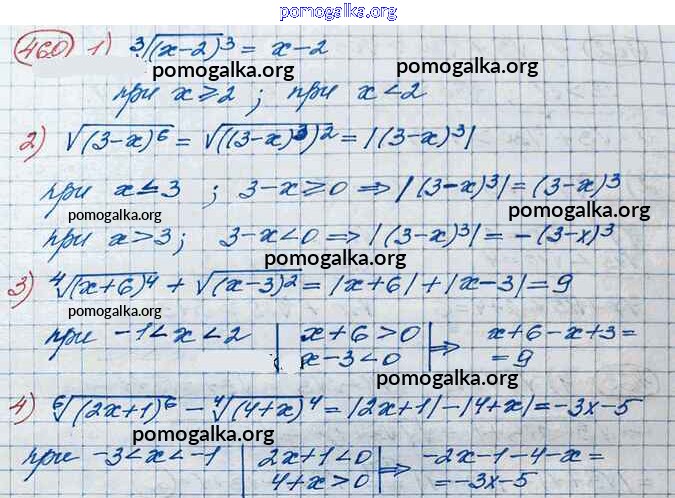 pomogalka.org
460 1) ³√(x-2)³ = x-2
pomogalka.org
при x ≥ 2 ; при x < 2
pomogalka.org
2) √(3-x)⁶ = √((3-x)³)² = |(3-x)³|
при x ≤ 3 ; 3-x ≥ 0 ⇒ |(3-x)³| = (3-x)³
pomogalka.org pomogalka.org
при x > 3 ; 3-x < 0 ⇒ |(3-x)³| = -(3-x)³
pomogalka.org
3) ⁴√(x+6)⁴ + √(x-3)² = |x+6| + |x-3| = 9
pomogalka.org
при -1 < x < 2 | x+6 > 0 | ⇒ x+6-x+3 =
x-3 < 0 = 9
pomogalka.org
4) ⁶√(2x+1)⁶ - ⁴√(4+x)⁴ = |2x+1| - |4+x| = -3x-5
pomogalka.org
при -3 < x < -1 | 2x+1 < 0 | ⇒ -2x-1-4-x =
4+x > 0 = -3x-5
pomogalka.org